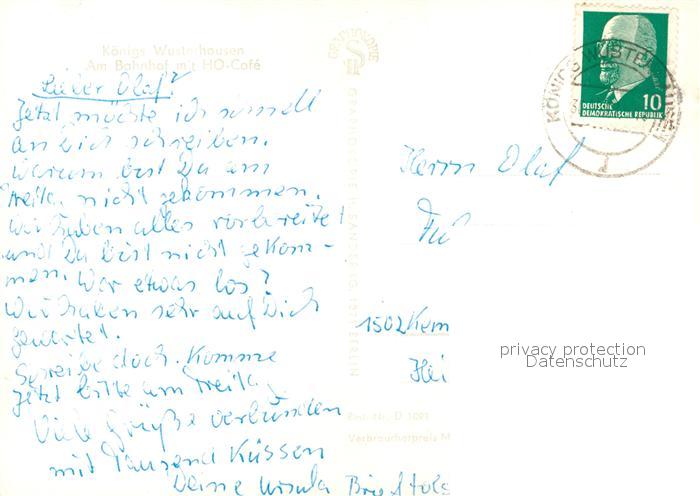 Königs Wusterhausen
Am Bahnhof mit HO-Café
Lieber Olaf!
Jetzt möchte ich schnell
an Dich schreiben.
Warum bist Du am
Freitag nicht gekommen.
Wir haben alles vorbereitet
und Du bist nicht gekom-
men. War etwas los?
Wir haben sehr auf Dich
gewartet.
Schreibe doch. Komme
jetzt bitte am Freitag.
Viele Grüße verbunden
mit Tausend Küssen
Deine Ursula
DEUTSCHE
DEMOKRATISCHE REPUBLIK
10
Herrn Olaf
1502
privacy protection
Datenschutz
Verbraucherpreis M